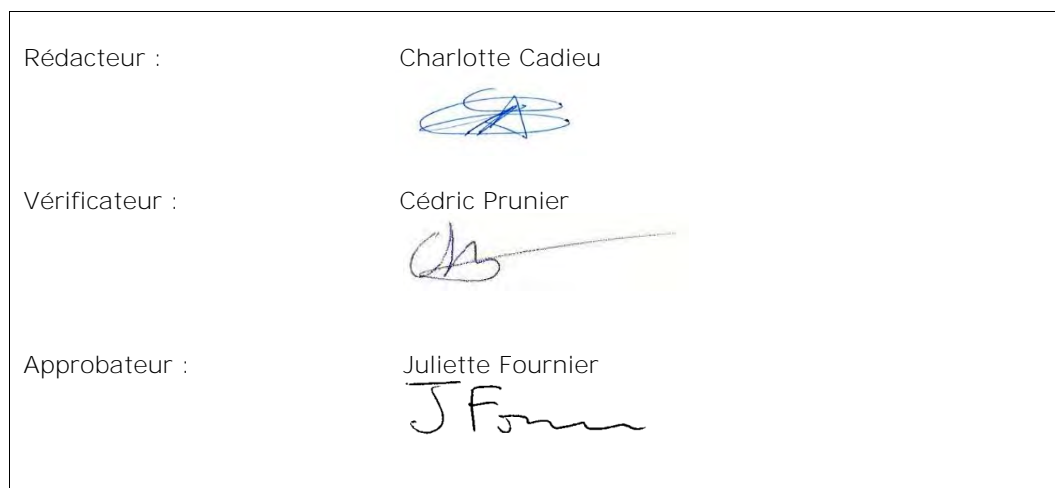 Rédacteur : Charlotte Cadieu
Vérificateur : Cédric Prunier
Approbateur : Juliette Fournier